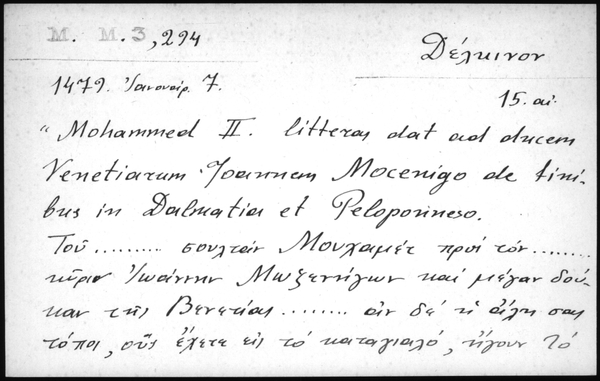 M. M. 3, 294
Δέλκινον
1479. Ἰανουαρ. 7.
15. αἰ.
"Mohammed II. litteras dat ad ducem
Venetiarum Joannem Mocenigo de fini-
bus in Dalmatia et Peloponneso.
Τοῦ ......... σουλτάν Μουχαμέτ πρὸς τὸν .........
κῦριν Ἰωάννην Μωζενῆγων καὶ μέγαν δού-
καν τῆς Βενετίας ......... οἱ δὲ ἄλλη σας
τόποι, οὓς ἔχετε εἰς τὸ καταγιαλό, ἤγουν τὸ